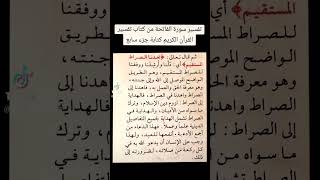 تفسير سورة الفاتحة من كتاب تفسير
القرآن الكريم كتابة جزء سابع
المستقيم
ثم قال تعالى: ﴿اهدنا الصراط
المستقيم﴾ أي: دلنا وأرشدنا ووفقنا
للصراط المستقيم، وهو الطريق
الواضح الموصل إلى الله وإلى جنته،
وهو معرفة الحق والعمل به، فاهدنا إلى
الصراط واهدنا في الصراط، فالهداية
إلى الصراط: لزوم دين الإسلام، وترك
ما سواه من الأديان، والهداية في
الصراط تشمل الهداية لجميع التفاصيل
الدينية علماً وعملاً. فهذا الدعاء من
أجمع الأدعية، أنفعها للعبد، ولهذا
وجب على الإنسان أن يدعو الله به في
كل ركعة من صلاته، لضرورته إلى
ذلك.